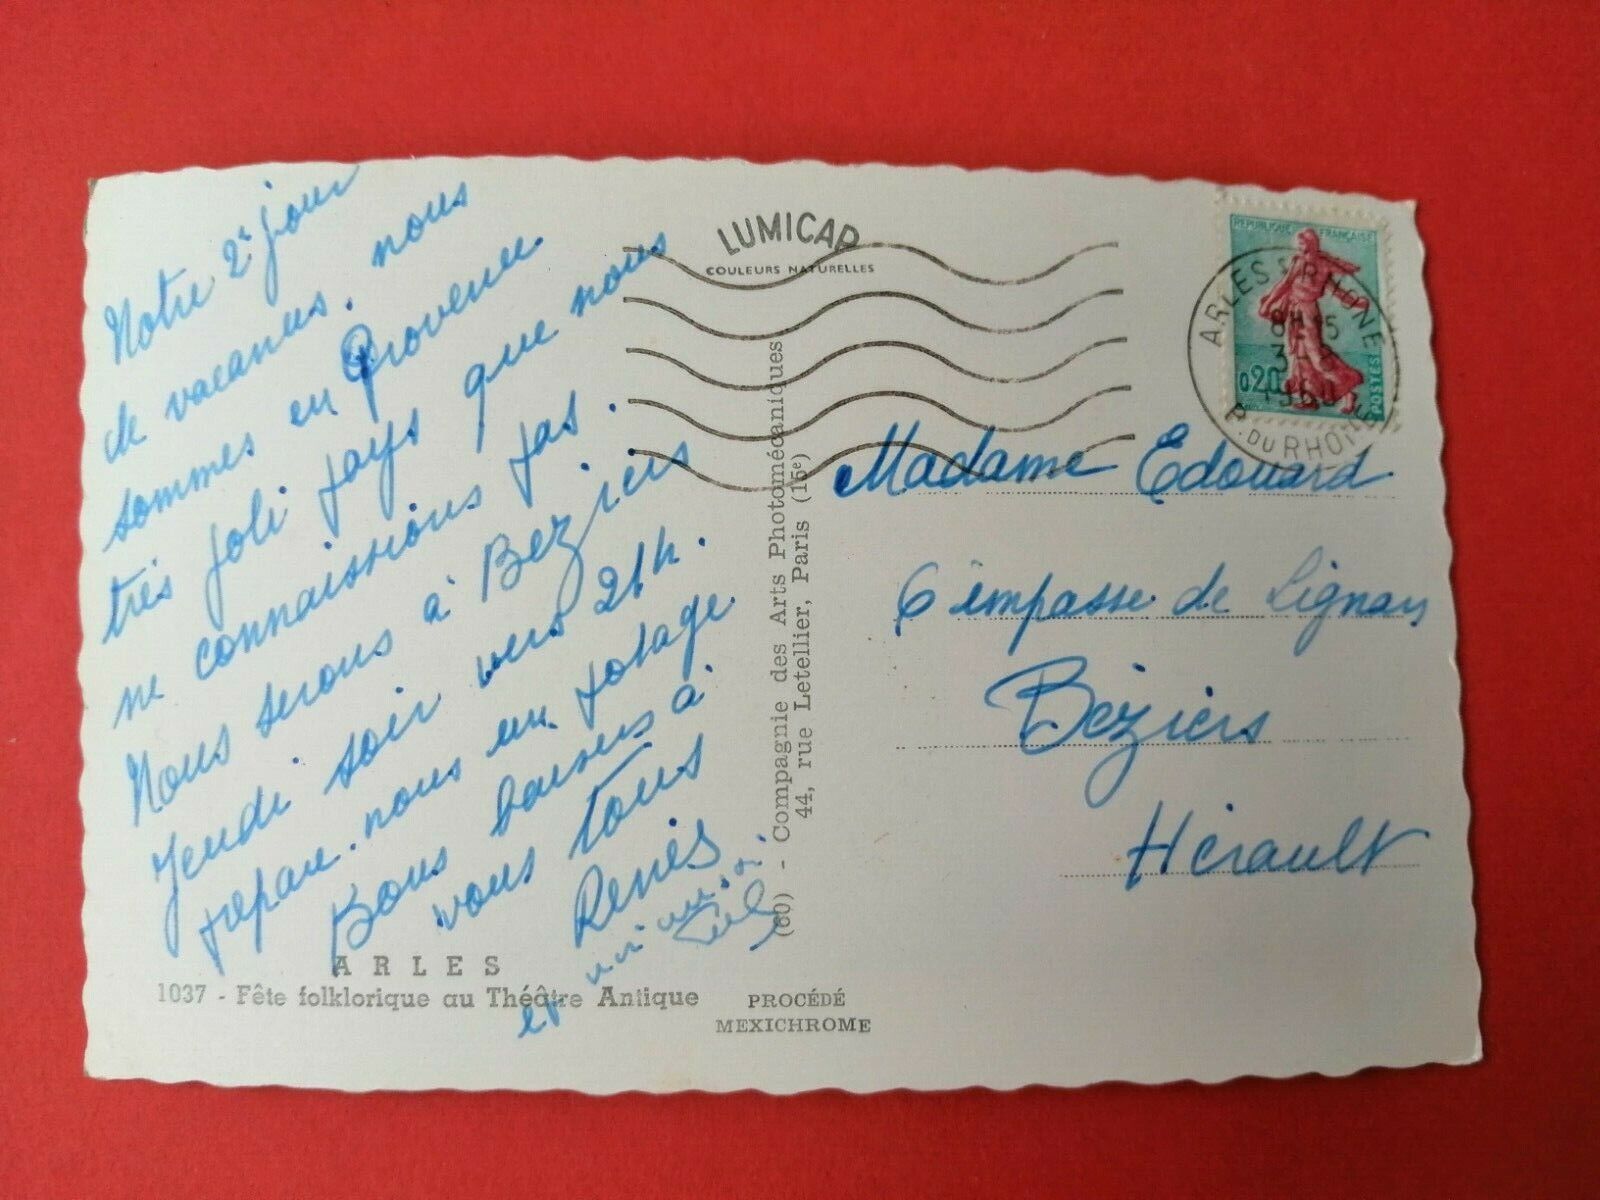 Notre 2e jour
de vacances. nous
sommes en Provence
très joli pays que nous
ne connaissions pas.
Nous serons à Beziers
Jeudi soir vers 21h.
prépare-nous un potage
Bons baisers à
vous tous
Renés
et mimi
LUMICAP
COULEURS NATURELLES
(60) - Compagnie des Arts Photomécaniques
44, rue Letellier, Paris (15e)
ARLES
1037 - Fête folklorique au Théâtre Antique
PROCÉDÉ
MEXICHROME
REPUBLIQUE FRANÇAISE
0,20
POSTES
ARLES S/ RHONE
8H 15
1960
B. DU RHONE
Madame Edouard
6 impasse de Lignan
Béziers
Hérault